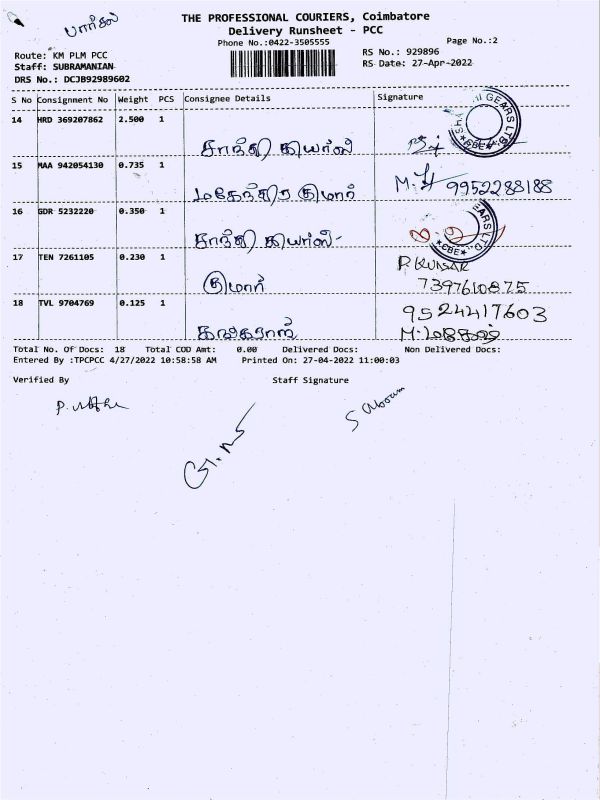 பார்சல்
THE PROFESSIONAL COURIERS, Coimbatore
Delivery Runsheet - PCC
Phone No.:0422-3505555
Page No.:2
Route: KM PLM PCC
RS No.: 929896
Staff: SUBRAMANIAN
RS Date: 27-Apr-2022
DRS No.: DCJB92989602
S No Consignment No Weight PCS Consignee Details Signature
14 HRD 369207862 2.500 1
சாந்தி கியர்ஸ்
GEARS LTD
CBE
15 MAA 942054130 0.735 1
மகேந்திர குமார் 9952288188
16 GDR 5232220 0.350 1
சாந்தி கியர்ஸ்-
GEARS LTD
CBE
17 TEN 7261105 0.230 1
P. KUMAR
குமார் 7397610875
18 TVL 9704769 0.125 1
9524417603
கனகராஸ்
Total No. Of Docs: 18 Total COD Amt: 0.00 Delivered Docs: Non Delivered Docs:
Entered By :TPCPCC 4/27/2022 10:58:58 AM Printed On: 27-04-2022 11:00:03
Verified By Staff Signature